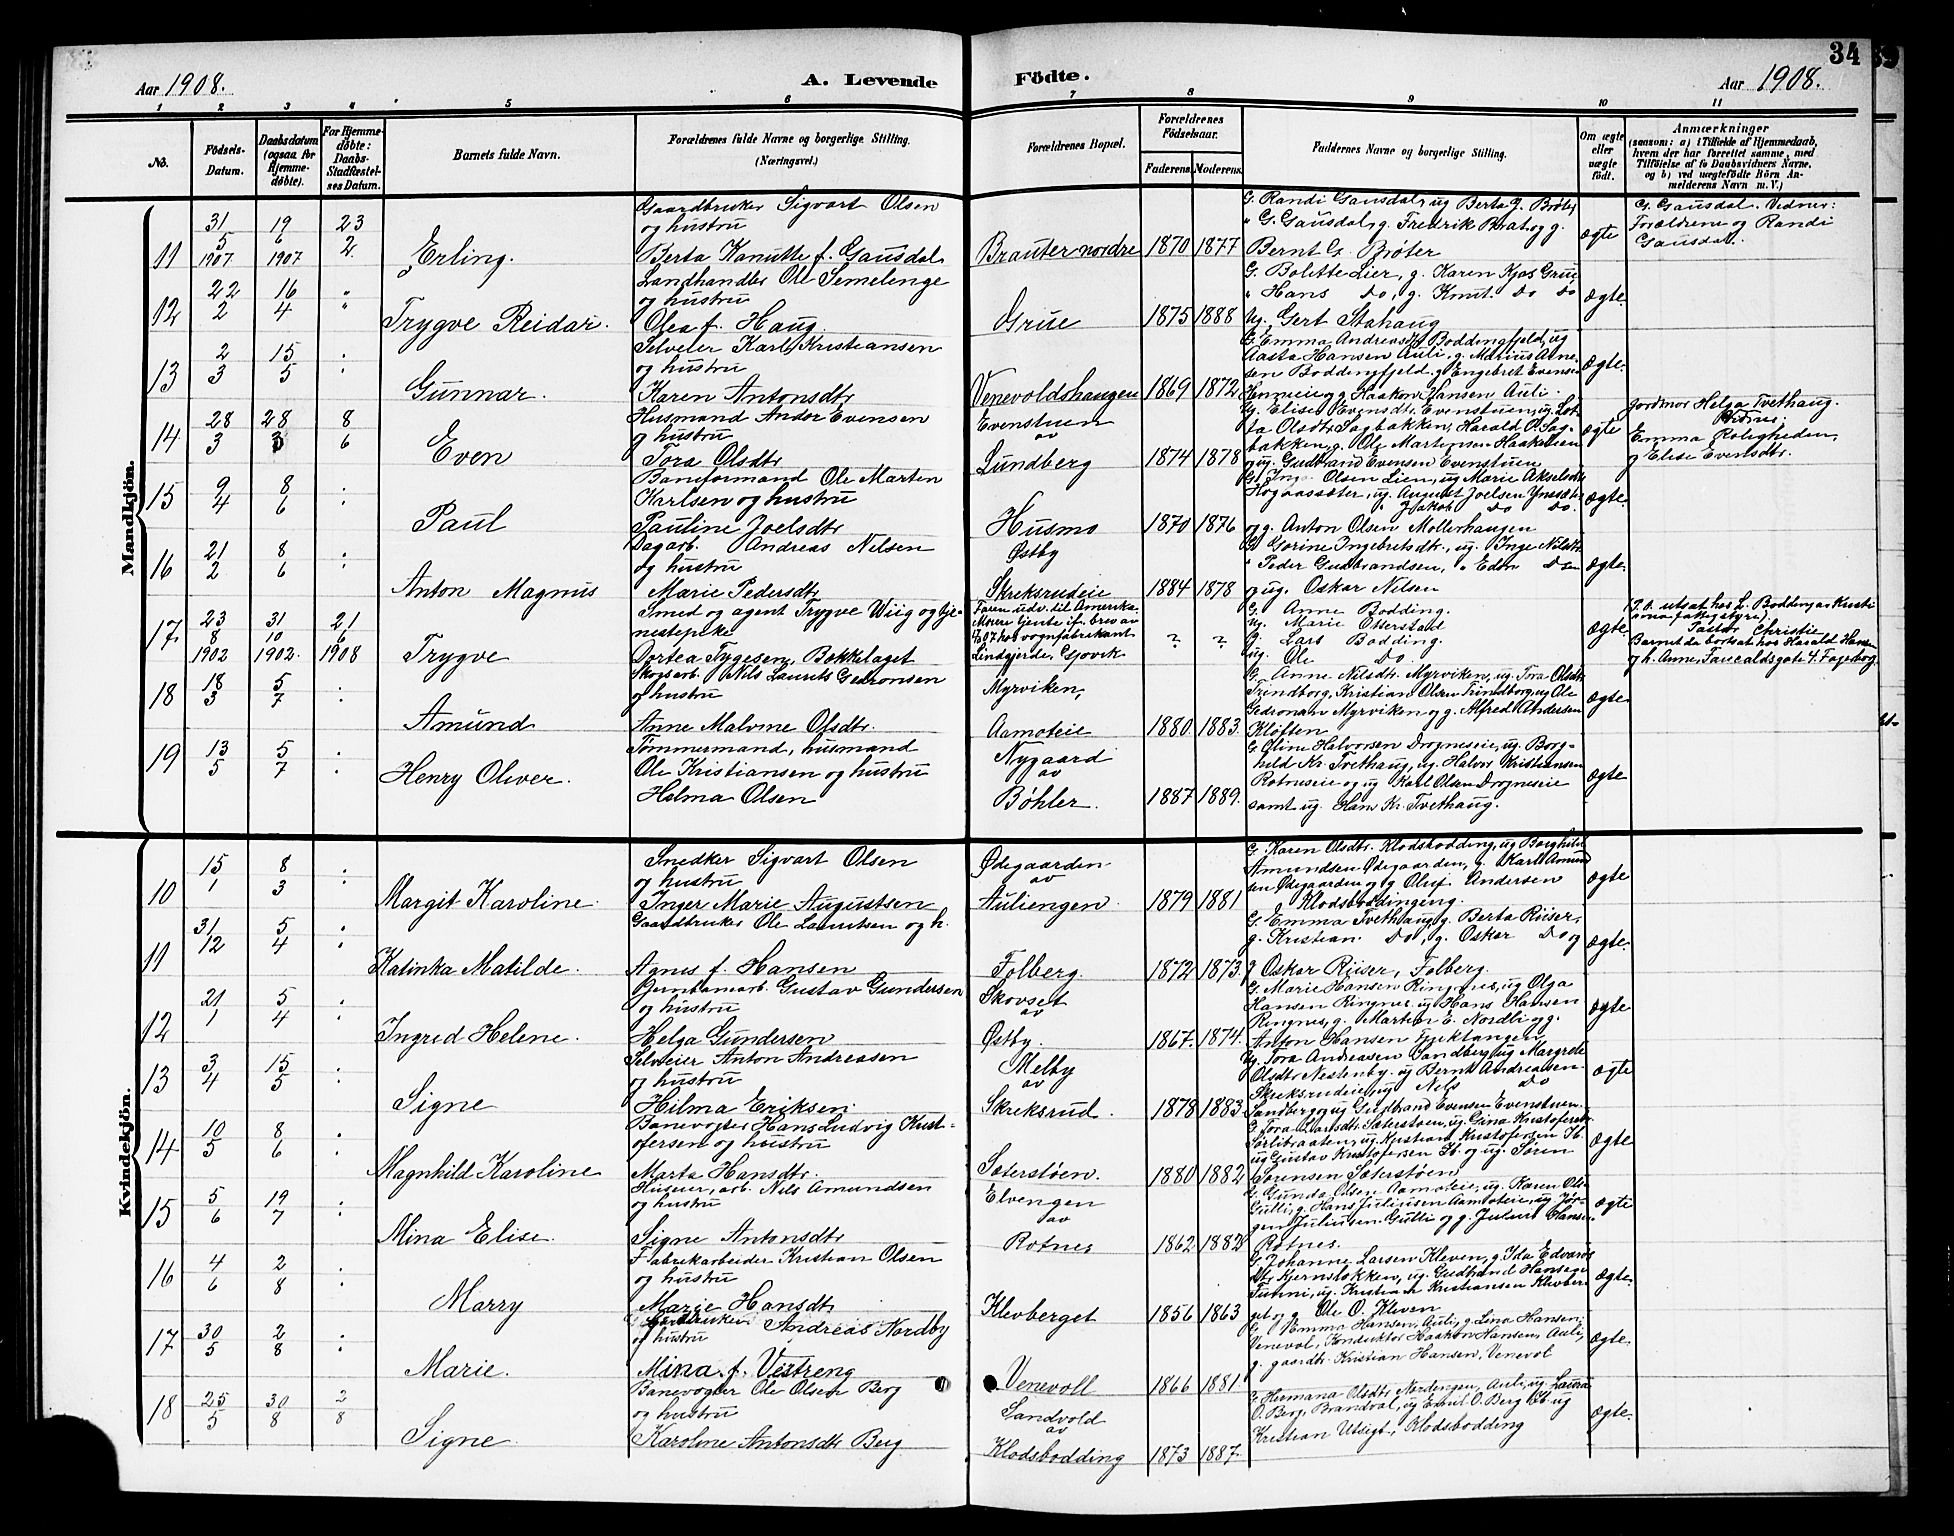 34
Aar 1908.
A. Levende
Födte.
Aar 1908.
1 2 3 4 5 6 7 8 9 10 11
No.
Födsels-Datum.
Daabsdatum (ogsaa for Hjemme-döbte).
For Hjemme-döbte: Daabs-Stadfæstel-ses Datum.
Barnets fulde Navn.
Forældrenes fulde Navne og borgerlige Stilling. (Næringsvei.)
Forældrenes Bopæl.
Forældrenes Födselsaar.
Faderens. Moderens.
Faddernes Navne og borgerlige Stilling.
Om ægte eller uægte födt.
Anmærkninger
(saasom: a) i Tilfælde af Hjemmedaab,
hvem der har forrettet samme, med
Tilföielse af to Daabsvidners Navne,
og b) ved uægtefödte Börn An-
melderens Navn m. V.)
Mandkjön.
11
31 19 23
5 6 2
1907 1907
Erling.
Gaardbruker Sigvart Olsen
og hustru
Berta Kanutte f. Gausdal
Brauter nordre 1870 1877
G. Randi Gausdal, ug Berta G. Brøter,
" G. Gausdal, g. Fredrik Prat og g.
Bernt G. Brøter
ægte
G. Gausdal. Vidner:
Forældrene og Randi
Gausdal.
12
22 16 "
2 4 "
Trygve Reidar.
Landhandler Ole Semelenge
og hustru
Olea f. Haug.
Grue 1875 1888
G. Bolette Lier, g. Karen Kjos Grue,
" Hans Do, g. Knut Do Do
Ug. Gert Stahaug
ægte
13
2 15
3 5
Gunnar.
Selveier Karl Kristiansen
og hustru
Karen Antonsdtr
Venevoldshaugen 1869 1872
G. Emma Andreasdtr Boddingfjeld, ug
Aasta Hansen Auli, g. Marius Arne-
sen Boddingfjeld. g Engebret Evensen
og Haakon Hansen Auli.
ægte
14
28 28 8
3 3 6
Even
Husmand Andor Evensen
g hustru
Tora Olsdtr
Evenstuen
av
Lundberg 1874 1878
Ug. Elise Evensdtr. Evenstuen, ug. Lot-
ta Olsdtr Sagbakken, Harald O. Sag-
bakken, g. Ole Martinsen Haakensen
og ug. Gudbrand Evensen Evenstuen
ægte
Jordmor Helga Tvethaug.
Vidner:
Emma Roligheden,
g Elise Evensdtr.
15
9 8
4 6
Paul
Baneformand Ole Marten
Karlsen og hustru
Pauline Joelsdtr
Husmo 1870 1876
G. Olsen Lien, ug Marie Akselsdtr
Høgaassæter, ug. August Joelsen
" Jakob Do Do.
og g. Anton Olsen Mollerhaugen
ægte
16
21 8
2 6
Anton Magnus
Dagarb. Andreas Nilsen
og hustru
Marie Pedersdtr
Østby
Skreksrudeie 1884 1878
G. Gorine Ingebretsdtr., ug. Inge Nilsdtr
" Peder Gudbrandsen, " Do
og ug. Oskar Nilsen
ægte
17
23 31 21
8 10 6
1902 1902. 1908
Trygve
Smed og agent Trygve Wiig og tje-
nestepike
Dortea Tygesen, Bakkelaget
Faren udv. til Amerika.
Moren tjente if. brev av
hos vognfabrikant
Lindgjerde, Gjøvik ? ?
G. Anne Bodding.
Ug. Marie Otterstad
G. Lars Bodding.
ug. Ole Do.
ægte
P. t. utsat hos L. Bodding av Kristi
ania fattigstyre,
Pastor Christie
Barnet da bortsat hos Harald Hansen
og h. Anne, Faucaldsgate 4. Fagerborg
18
18 5
3 7
Amund
Skogsarb. Nils Laurits Gedionsen
g hustru
Anne Malvine Olsdtr.
Myrviken,
Aamoteie 1880 1883.
G. Anne Nilsdtr Myrviken, ug. Tora Olsdtr
Trindborg, Kristian Olsen Trindborg, ug Ole
Gedeonsen Myrviken og g. Alfred Andersen
Kløften
ægte
19
13 5
5 7
Henry Oliver.
Tømmermand, husmand
Ole Kristiansen og hustru
Helma Olsen
Nygaard
av
Bøhler. 1887 1889.
G. Oline Halvorsen Drogneseie, ug. Borg-
hild Kr. Tvethaug, ug. Halvor Kristiansen
Rotneseie og ug Karl Olsen Drogneseie
samt ug. Hans Kr. Tvethaug.
ægte
Kvindekjön.
10
15 8
1 3
Margit Karoline
Snedker Sigvart Olsen
og hustru
Inger Marie Augustsen
Ødegaarden
av
Auliengen 1879 1881
G. Karen Olsdtr. Klodsbodding, ug Borghild
Amundsen Ødegaarden, g. Karl Amund
sen Ødegaarden og g Oluf Andersen
Klodsboddingeng.
ægte
11
31 5
12 4
Katinka Matilde.
Gaardbruker Ole Lauritsen og h.
Agnes f. Hansen
Folberg. 1872 1873.
G. Emma Tvethaug, g. Berta Riiser,
g. Kristian Do, g. Oskar Do og
g Oskar Riiser, Folberg.
ægte
12
21 5
1 4
Ingrid Helene.
Jernbanearb. Gustav Gundersen
og hustru
Helga Gundersen
Skovset
av
Østby. 1867. 1874.
G. Marie Hansen Ringnes, ug Olga
Hansen Ringnes, ug Hans Hansen
Ringnes, g. Martin E. Nordli og g.
Anton Hansen Gjektangen
ægte
13
3 15
4 5
Signe
Selveier Anton Andreasen
og hustru
Hilma Eriksen.
Melby
av
Skreksrud. 1878 1883
Ug. Tora Andreasen Sandberg, ug Margrete
Olsdtr Nestenby. ug Bernt Andreasen
Skreksrudeie, ug Nils Do
Sandberg og ug Gudbrand Evensen Evenstuen.
ægte
14
10 8
5 6
Magnhild Karoline
Banevogter Hans Ludvig Krist-
ofersen og hustru
Marta Hansdtr.
Sæterstøen. 1880 1882
G. Tora Larsdtr. Sæterstøen, ug. Gina Kristofersdtr
Sørlibraaten, ug. Kristian Kristofersen Ib.
ug Gustav Kristofersen Ib. og ug. Søren
Sørensen Sæterstøen
ægte
15
5 19
6 7
Mina Elise.
Huseier, arb. Nils Amundsen
og hustru
Signe Antonsdtr
Elvengen
av
Rotnes 1862 1882
G. Gunda Olsen Aamoteie, ug. Karen Ols.
Gulli, g. Hans Juliussen Aamoteie, ug Jør-
gen Juliussen Gulli og g. Julius Hansen
Rotnes.
ægte
16
4 2
6 8
Marry
Fabrikarbeider Kristian Olsen
og hustru
Marie Hansdtr
Klevberget 1856 1863
G. Johanne Larsen Kleven, g. Ida Edvards
dtr Kjernsløkken, ug. Gudbrand Hansen
ug. Kristian Kristiansen Klevber
get og g. Ole O. Kleven
ægte
17
30 2
5 8
Marie.
Gaardbruker Andreas Nordby
og hustru
Mina f. Vestreng
Venevoll 1866 1881
G. Emma Hansen, Auli, g. Lina Hansen,
Venevol, Konduktør Haakon Hansen, Auli,
g. gaardbr. Kristian Hansen, Venevol
ægte
18
25 30 2
5 8 8
Signe
Banevogter Ole Olsen Berg
og hustru
Karoline Antonsdtr Berg
Sandvold
av
Klodsbodding 1873 1887.
G. Hermana Olsdtr, Nordengen, Auli, ug. Laura
O. Berg, Brandval, ug Emil O. Berg Ib. ug
Kristian Utsigt, Klodsbodding
ægte